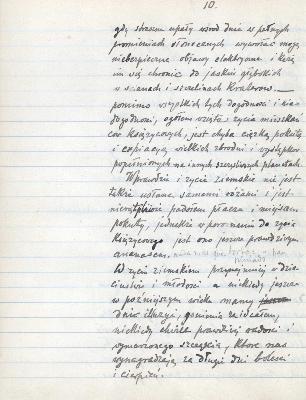 10.
gdy straszne upały wśród dnia w pełnych
promieniach słonecznych wywołać mogą
niebezpieczne objawy elektryczne i każą
im się chronić do jaskiń głębokich
w ścianach i szczelinach Kraterów. —
pomimo wszystkich tych dogodności i nie
dogodności, ogółem wzięte życie mieszkań
ców Księżycowych, jest chyba ciężką pokutą
i expiacyą wielkich zbrodni i występków
popełnionych na innych szczęśliwych planetach
Wprawdzie i życie ziemskie nie jest
także usłane samemi różami i jest
niewątpliwie padołem płacza i miejscem
pokuty, jednakże w porównaniu do życia
Księżycowego jest ono jeszcze prawdziwym
ananasem,
W życiu ziemskiem przynajmniej w dzie
ciństwie i młodości a niekiedy jeszcze
w późniejszym wieku mamy
dnie illuzyi, gonienia za ideałem,
niekiedy chwile prawdziwej radości i
wymarzonego szczęścia, które nas
wynagradzają za długie dni boleści
i cierpień.